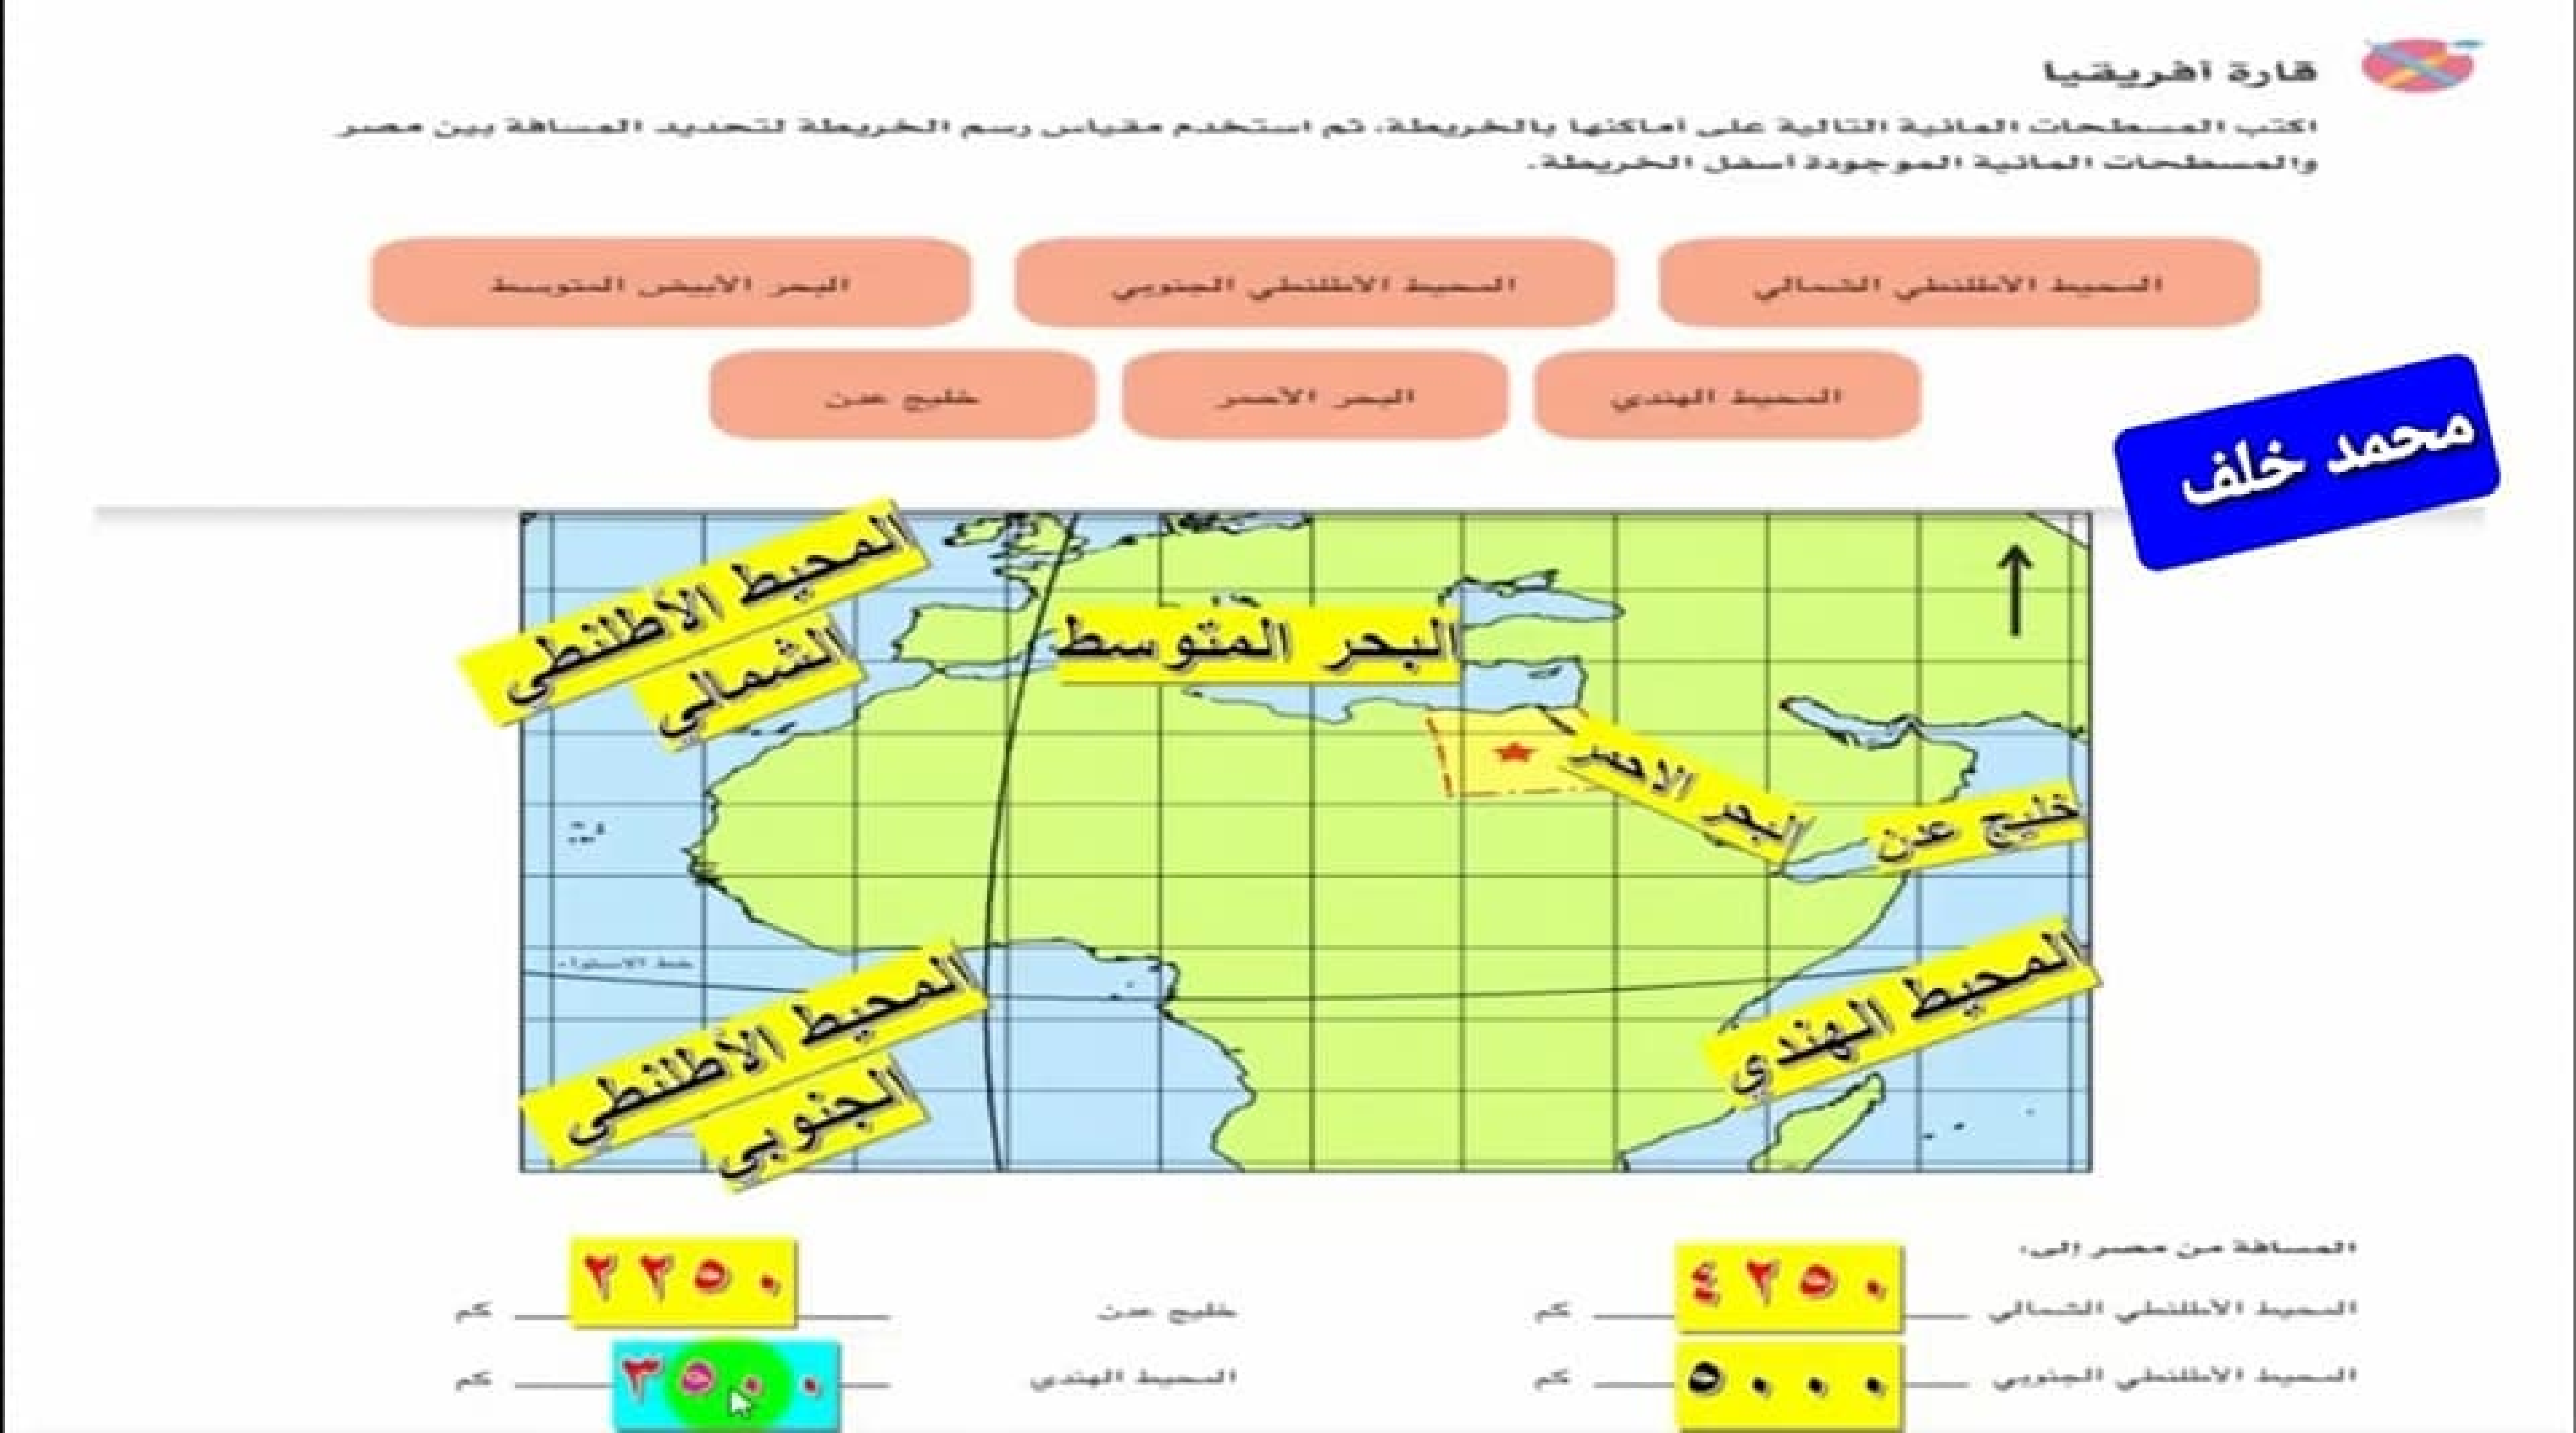 قارة أفريقيا
اكتب المسطحات المائية التالية على أماكنها بالخريطة، ثم استخدم مقياس رسم الخريطة لتحديد المسافة بين مصر
والمسطحات المائية الموجودة أسفل الخريطة.
المحيط الأطلنطي الشمالي
المحيط الأطلنطي الجنوبي
البحر الأبيض المتوسط
المحيط الهندي
البحر الأحمر
خليج عدن
محمد خلف
المحيط الأطلنطي
الشمالي
البحر المتوسط
البحر الاحمر
خليج عدن
خط الاستواء
المحيط الأطلنطي
الجنوبي
المحيط الهندي
المسافة من مصر إلى:
المحيط الأطلنطي الشمالي ٤٢٥٠ كم
خليج عدن ٢٢٥٠ كم
المحيط الأطلنطي الجنوبي ٥٠٠٠ كم
المحيط الهندي ٣٥٠٠ كم